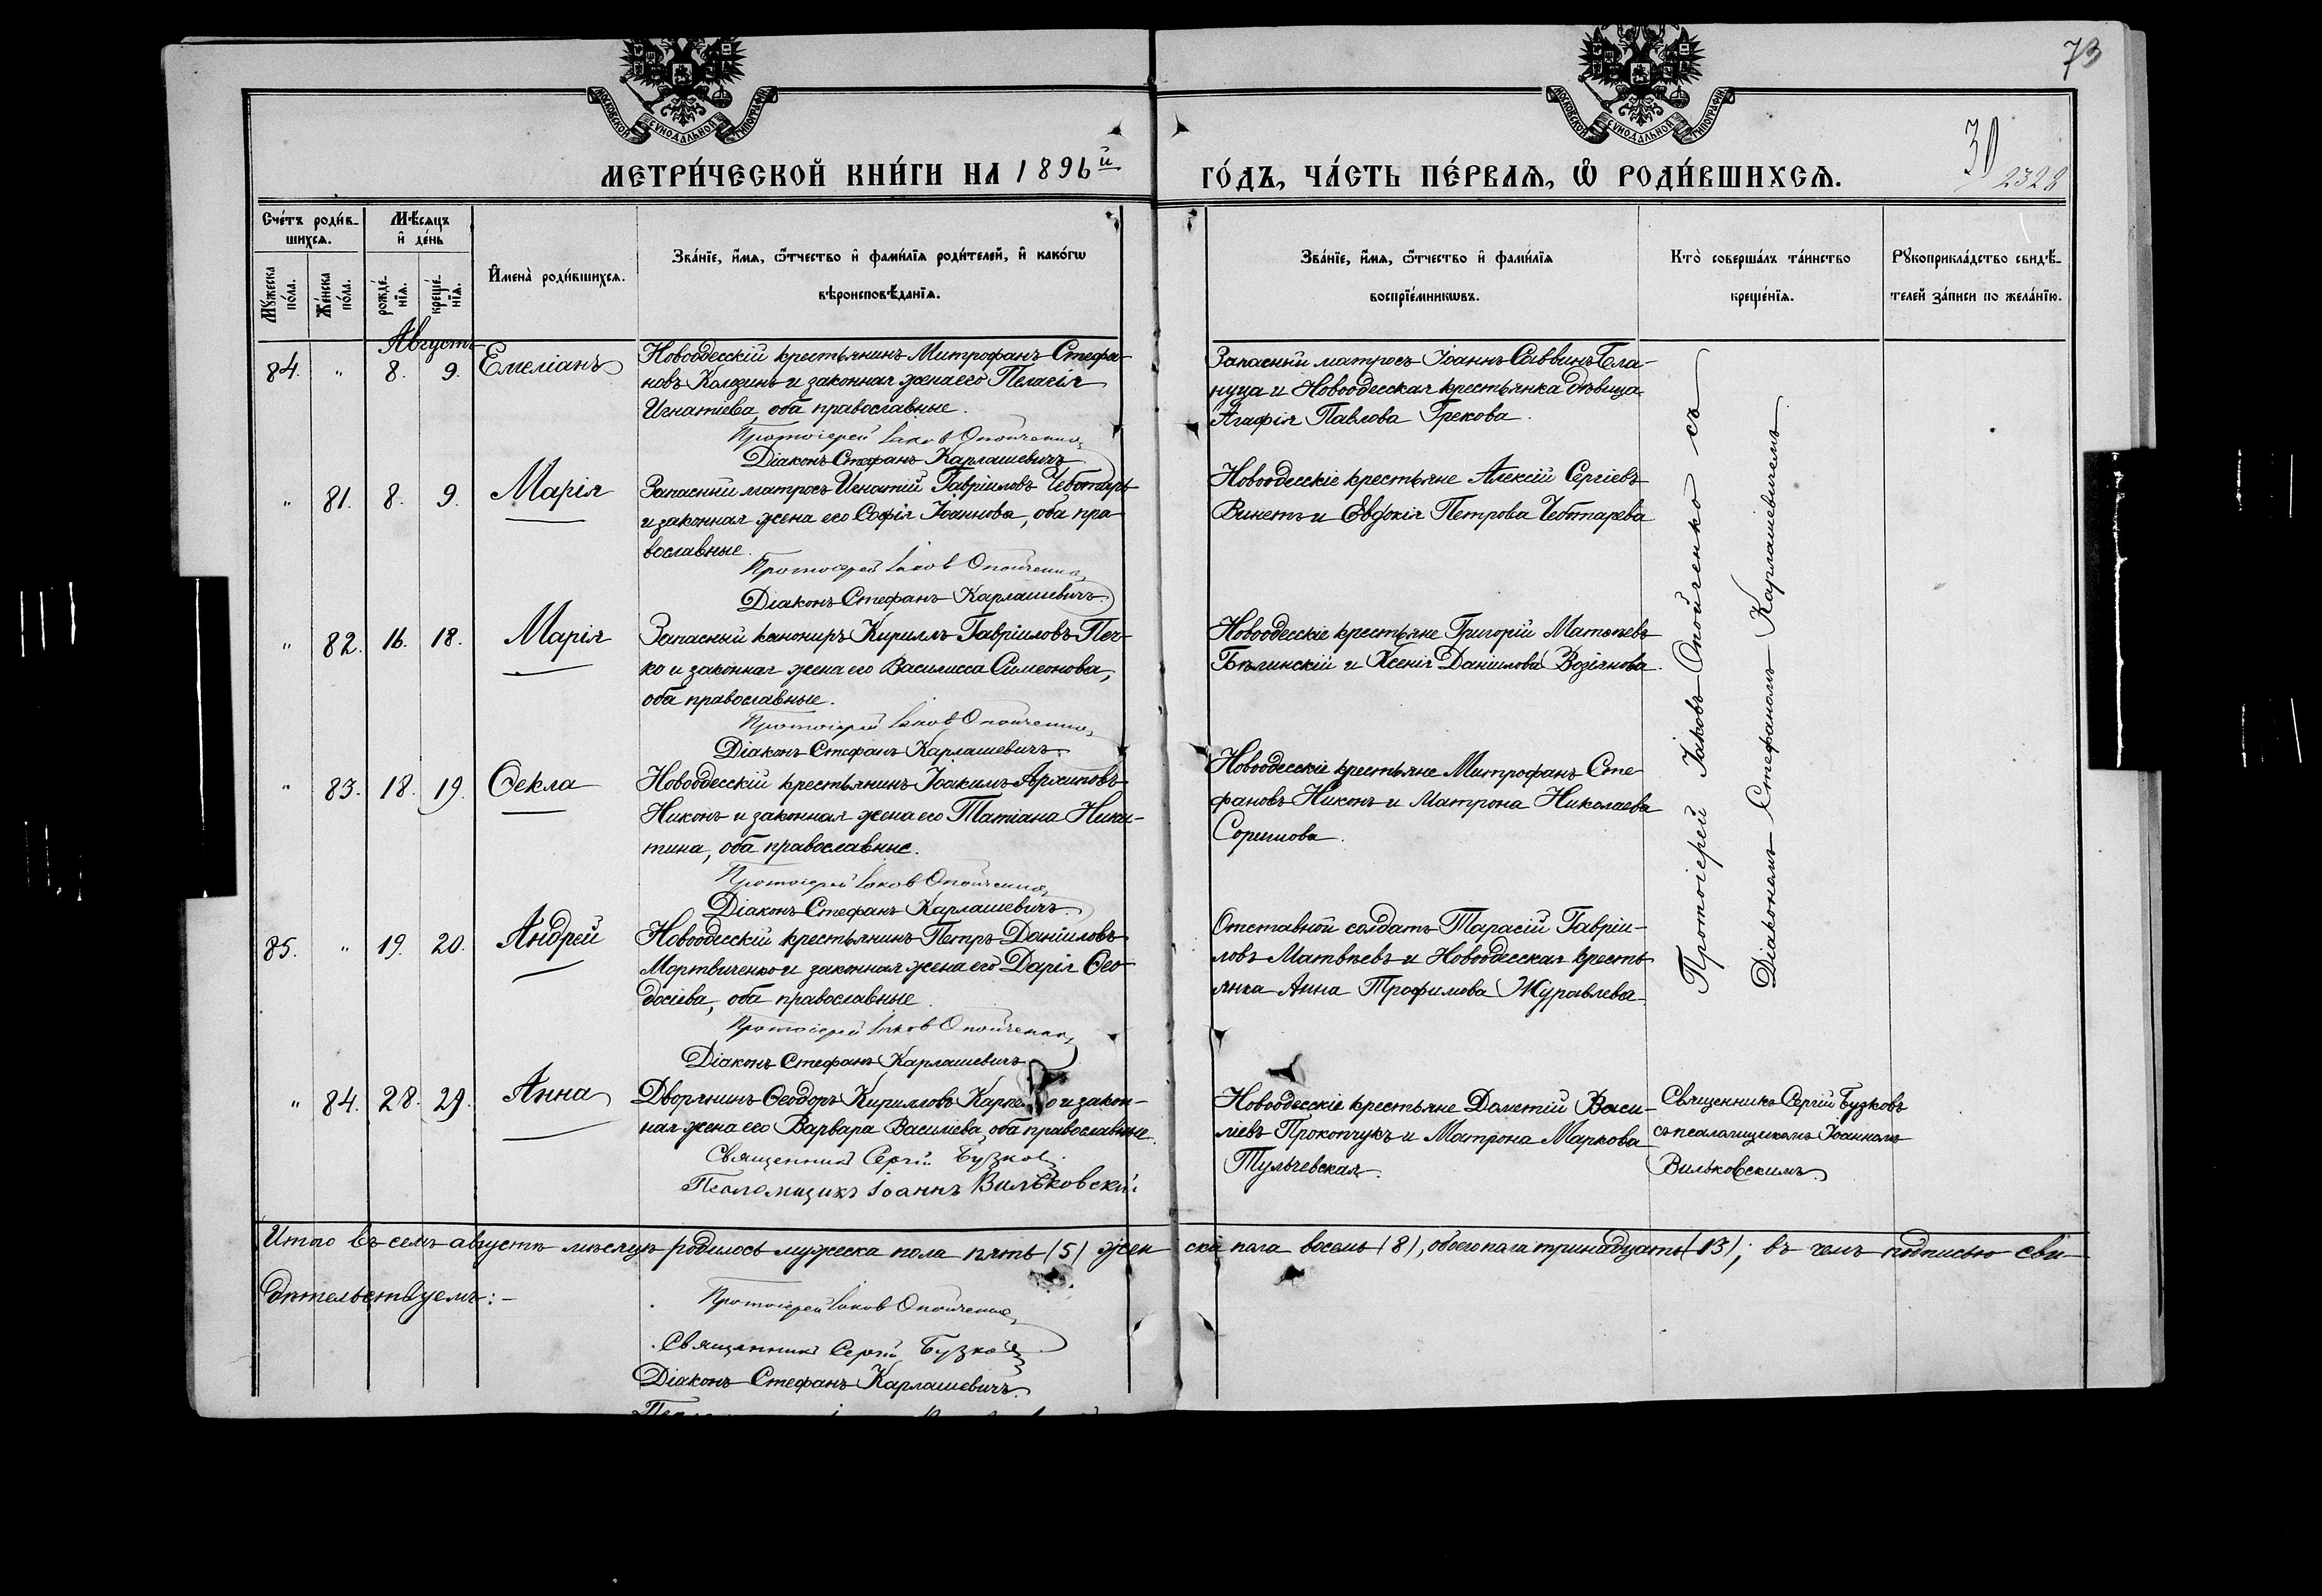 МОСКОВСКОЙ СѴНОДАЛЬНОЙ ТИПОГРАФІИ
МОСКОВСКОЙ СѴНОДАЛЬНОЙ ТИПОГРАФІИ
73
30
2328
МЕТРИ́ЧЕСКОЙ КНИ́ГИ НА 1896й
ГО́ДЪ, ЧА́СТЬ ПЕ́РВАѦ, Ѡ҆ РОДИ́ВШИХСѦ.
Сче́тъ роди́вшихсѧ.
Мꙋ́жеска по́ла.
Же́нска по́ла.
Мѣ́сѧцъ и҆ де́нь
рожде́нїѧ.
креще́нїѧ.
И҆мена̀ роди́вшихсѧ.
Зва́нїе, и҆́мѧ, ѻ҆́тчество и҆ фами́лїѧ роди́телей, и҆ како́гѡ
вѣроисповѣ́данїѧ.
Зва́нїе, и҆́мѧ, ѻ҆́тчество и҆ фами́лїѧ
воспрїе́мникѡвъ.
Кто̀ соверша́лъ та́инство
креще́нїѧ.
Рꙋкоприкла́дство свидѣ́телей за́писи по жела́нїю.
Августъ
84. " 8. 9. Емеліанъ
Новоодесскій крестьянинъ Митрофанъ Стефа-
новъ Колдинъ и законная жена его Пелагія
Игнатіева, оба православные.
Протоіерей Іаковъ Опойченко
Діаконъ Стефанъ Карлашевичъ
Запасный матросъ Іоаннъ Саввинъ Гла-
нуца и Новоодесская крестьянка дѣвица
Агафія Павлова Грекова.
" 81. 8. 9. Марія
Запасный матросъ Игнатій Гавріиловъ Чеботарь
и законная жена его Софія Іоаннова, оба пра-
вославные.
Протоіерей Іаковъ Опойченко
Діаконъ Стефанъ Карлашевичъ.
Новоодесскіе крестьяне Алексій Сергіевъ
Винетъ и Евдокія Петрова Чеботарева
" 82. 16. 18. Марія
Запасный канониръ Кириллъ Гавріиловъ Печ-
ко и законная жена его Василисса Симеонова,
оба православные.
Протоіерей Іаковъ Опойченко
Діаконъ Стефанъ Карлашевичъ.
Новоодесскіе крестьяне Григорій Матвѣевъ
Бѣлинскій и Ксенія Даніилова Возіянова.
" 83. 18. 19. Ѳекла
Новоодесскій крестьянинъ Іоакимъ Архиповъ
Никонъ и законная жена его Татіана Ники-
тина, оба православные.
Протоіерей Іаковъ Опойченко
Діаконъ Стефанъ Карлашевичъ.
Новоодесскіе крестьяне Митрофанъ Сте-
фановъ Никонъ и Матрона Николаева
85. " 19. 20. Андрей
Новоодесскій крестьянинъ Петръ Даніиловъ
Мортвиченко и законная жена его Дарія Ѳео-
досіева, оба православные.
Протоіерей Іаковъ Опойченко
Діаконъ Стефанъ Карлашевичъ
Отставной солдатъ Тарасій Гавріи-
ловъ Матвѣевъ и Новоодесская кресть-
янка Анна Трофимова Журавлева
Протоіерей Іаковъ Опойченко съ
Діакономъ Стефаномъ Карлашевичемъ
" 84. 28. 29. Анна
Дворянинъ Ѳеодоръ Кирилловъ и закон-
ная жена его Варвара Василіева, оба православные.
Священникъ Сергій Бузковъ
Псаломщикъ Іоаннъ Вильковскій
Новоодесскіе крестьяне Дометій Васи-
ліевъ Прокопчукъ и Матрона Маркова
Тульчевская.
Священникъ Сергій Бузковъ
съ псаломщикомъ Іоанномъ
Вильковскимъ.
Итого въ семъ августѣ мѣсяцѣ родилось мужеска пола пять (5) жен ска пола восемь (8), обоего пола тринадцать (13); въ чемъ подписью сви-
дѣтельствуемъ:-
Протоіерей Іаковъ Опойченко
Священникъ Сергій Бузковъ
Діаконъ Стефанъ Карлашевичъ.